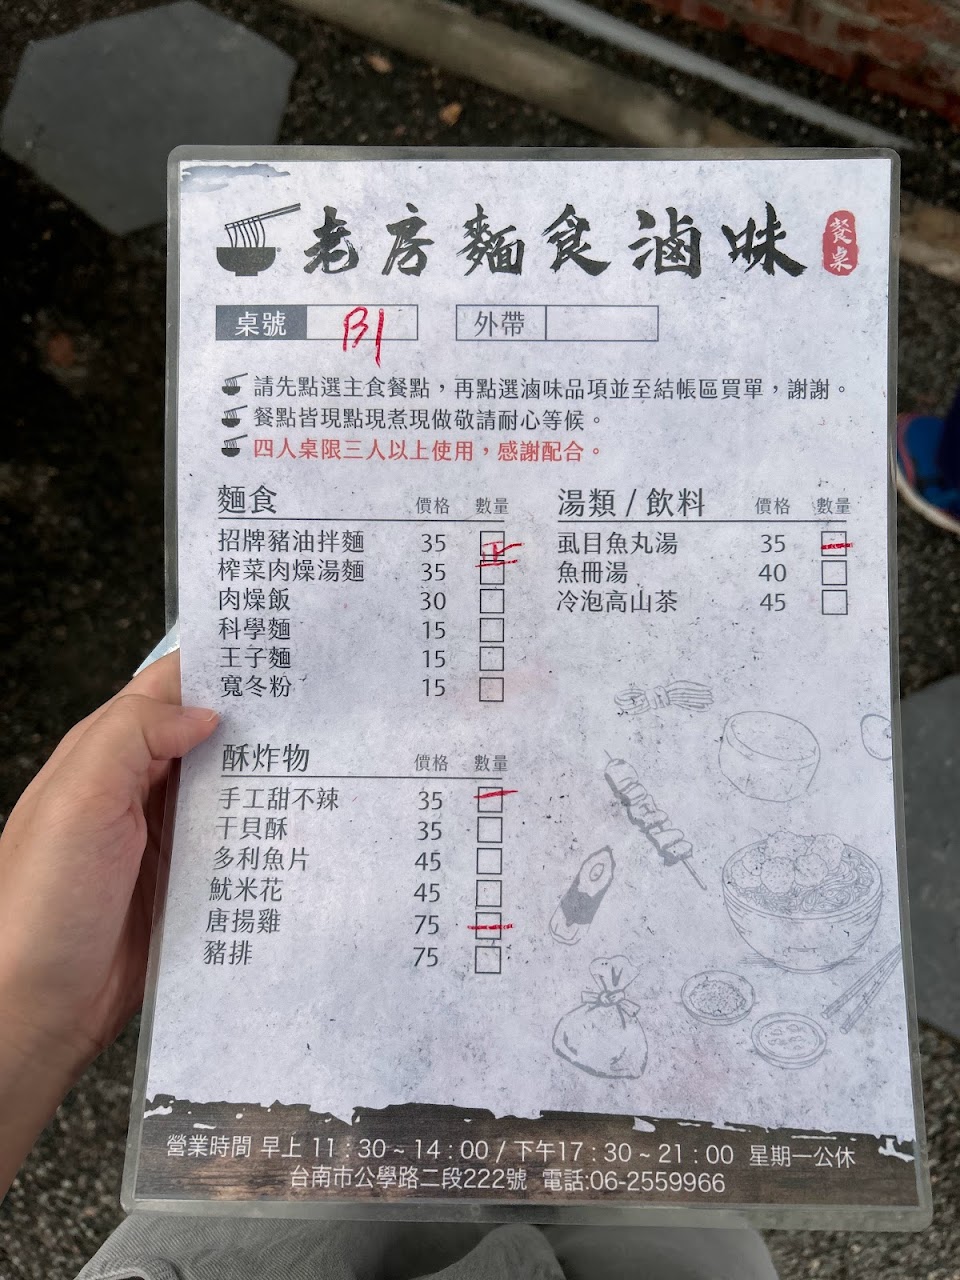 老房麵食滷味 餐桌
桌號 B1 外帶
請先點選主食餐點，再點選滷味品項並至結帳區買單，謝謝。
餐點皆現點現煮現做敬請耐心等候。
四人桌限三人以上使用，感謝配合。
麵食 價格 數量
招牌豬油拌麵 35
榨菜肉燥湯麵 35
肉燥飯 30
科學麵 15
王子麵 15
寬冬粉 15
湯類 / 飲料 價格 數量
虱目魚丸湯 35 一
魚冊湯 40
冷泡高山茶 45
酥炸物 價格 數量
手工甜不辣 35 一
干貝酥 35
多利魚片 45
魷米花 45
唐揚雞 75 一
豬排 75
營業時間 早上 11：30 ~ 14：00 / 下午17：30 ~ 21：00 星期一公休
台南市公學路二段222號 電話:06-2559966